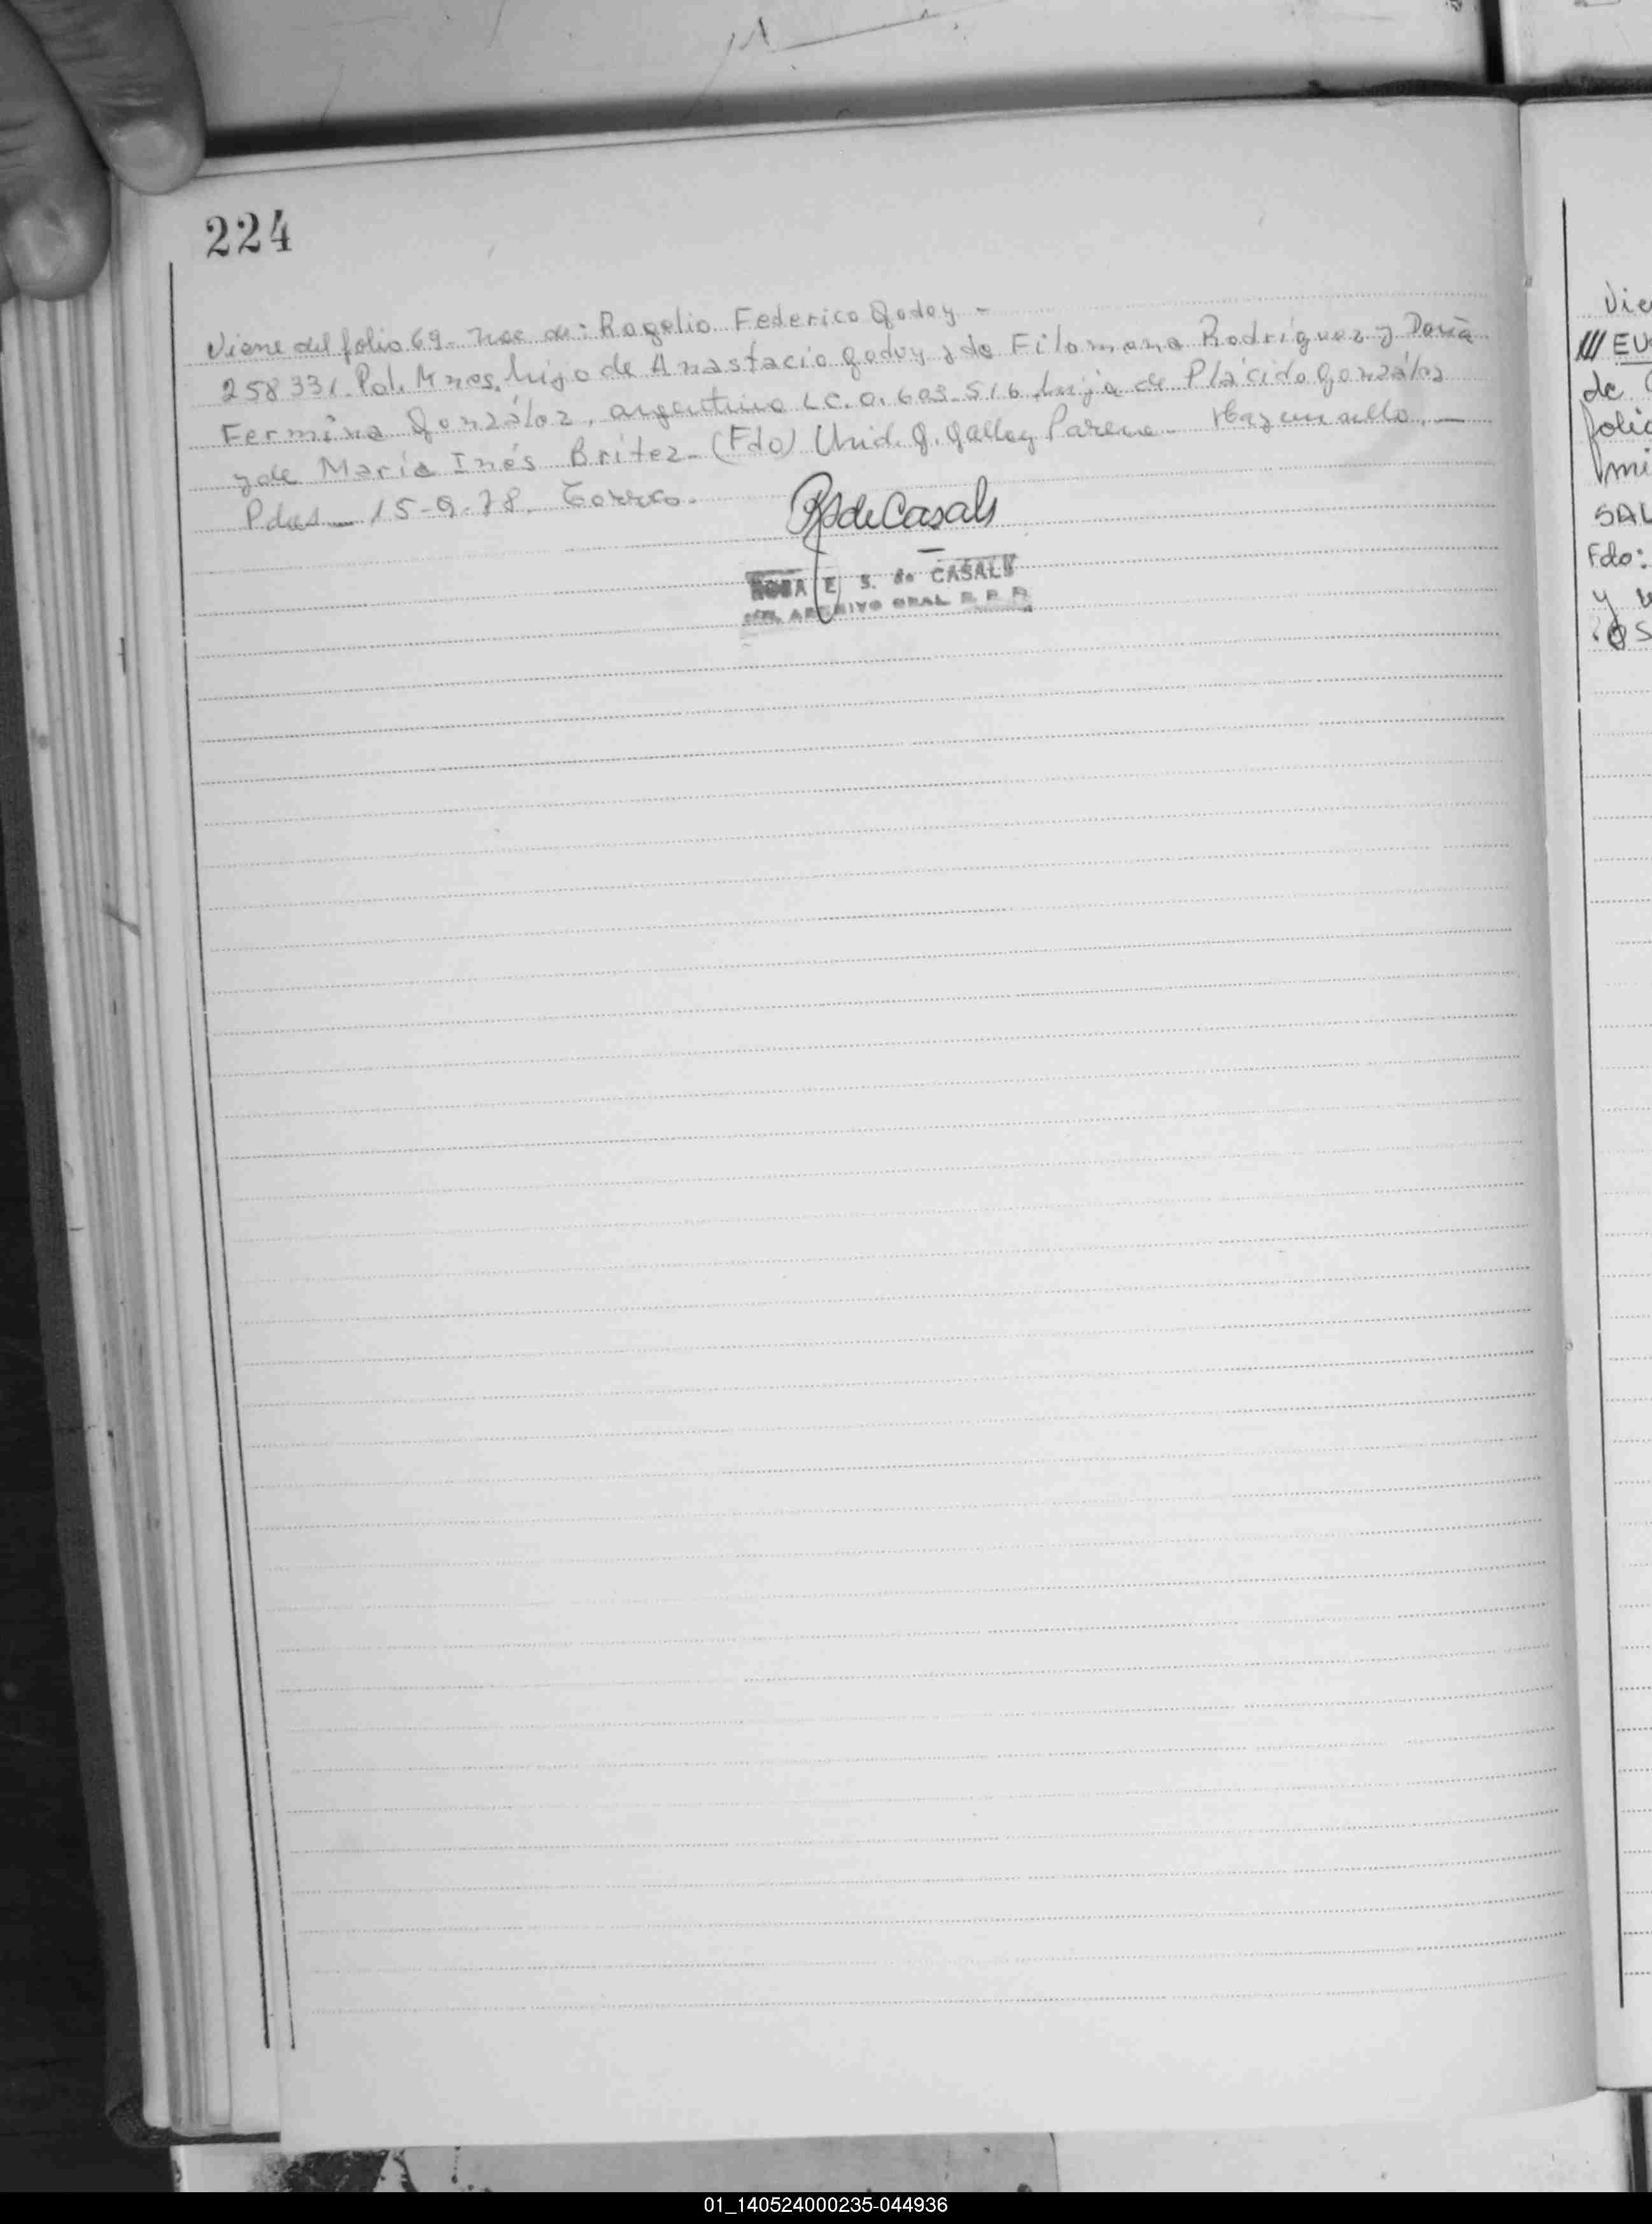 224
Viene del folio 69. Nac de: Rogelio Federico Godoy -
258331. Pol. Mnes. hijo de Anastacio Godoy y de Filomena Rodríguez y Doña
Fermina González, argentina L.C. 0.603.516 hija de Plácido González
y de María Inés Britez - (Fdo) Unid. G. Galley
Pdas - 15-9-78.
RSdeCasals
ROSA E. S. de CASALS
ARCHIVO GRAL R. P. P.
Vie
/// EU
de
folio
mi
SAL
Fdo:
y
01_140524000235-044936